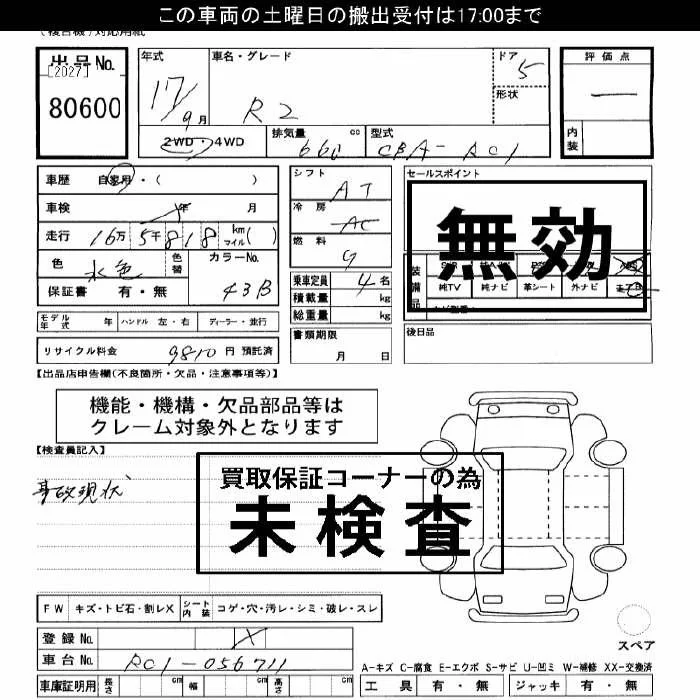 この車両の土曜日の搬出受付は17:00まで
(複合機)対応用紙
出品No.
[2027]
80600
年式 車名・グレード ドア
17/9月 R2 5
形状
2WD・4WD 排気量 660 cc 型式 CBA-RC1
評価点
—
内装
車歴 自家用・( )
車検 年 月
走行 16万5千818 km マイル( )
色 水色 色替 カラーNo.
保証書 有・無 43B
シフト AT
冷房 AC
燃料 G
乗車定員 4名
積載量 kg
総重量 kg
書類期限
月 日
セールスポイント
無効
装備品
純TV 純ナビ 革シート 外ナビ
後日品
モデル年式 年 ハンドル 左・右 ディーラー・並行
リサイクル料金 9810 円 預託済
【出品店申告欄(不良箇所・欠品・注意事項等)】
機能・機構・欠品部品等は
クレーム対象外となります
【検査員記入】
事故現状
買取保証コーナーの為
未検査
FW キズ・トビ石・割レX シート内装 コゲ・穴・汚レ・シミ・破レ・スレ
登録No.
車台No. RC1-056711
車庫証明用 長さ cm 幅 cm 高さ cm
スペア
A-キズ C-腐食 E-エクボ S-サビ U-凹ミ W-補修 XX-交換済
工具 有・無 ジャッキ 有・無